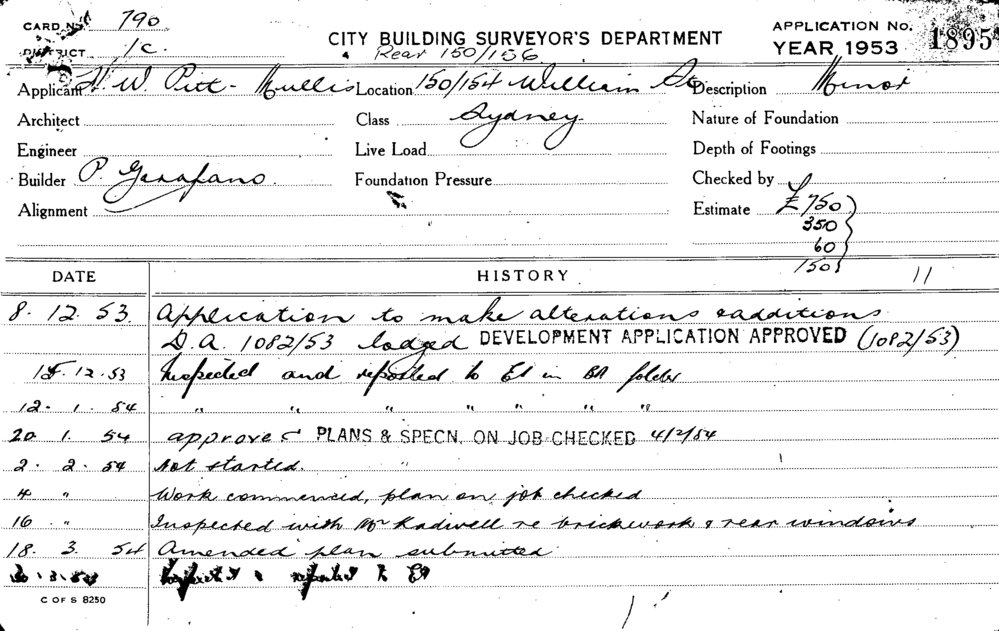 CARD No. 790
DISTRICT 1c.
CITY BUILDING SURVEYOR'S DEPARTMENT
Rear 150/156
APPLICATION No. 1895
YEAR 1953
Applicant H. W. Pitt-Mullis Location 150/154 William St Description Minor
Architect Class Sydney Nature of Foundation
Engineer Live Load Depth of Footings
Builder P. Garafano. Foundation Pressure Checked by
Alignment Estimate £750
350
60
150
11
DATE HISTORY
8. 12. 53. Application to make alterations & additions
D.A. 1082/53 lodged DEVELOPMENT APPLICATION APPROVED (1082/53)
15. 12. 53 Inspected and reported to EI in BA folder
12. 1. 54 " " " " " " "
20. 1. 54 approved PLANS & SPECN. ON JOB CHECKED 4/2/54
2. 2. 54 Not started. "
4 " Work commenced, plan on job checked
16 " Inspected with Mr Kadwell re brickwork & rear windows
18. 3. 54 Amended plan submitted
3. 54 Inspected & reported to EI
C OF S 8250